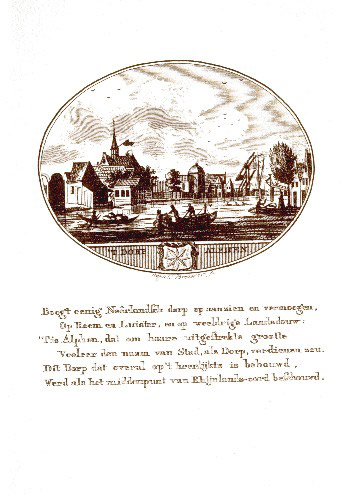 HET DORP ALPHEN
Boogt eenig Neêrlandsch dorp op aanzien en vermogen,
Op Roem en Luister, en op weeldrige Landsdouw:
'T is Alphen, dat om haare uitgestrekte grootte
Veeleer den naam van Stad, als Dorp, verdienen zou.
Dit Dorp dat overal op't heerlijkts is bebouwd,
Werd als het middenpunt van Rhijnlands-oord beschouwd.